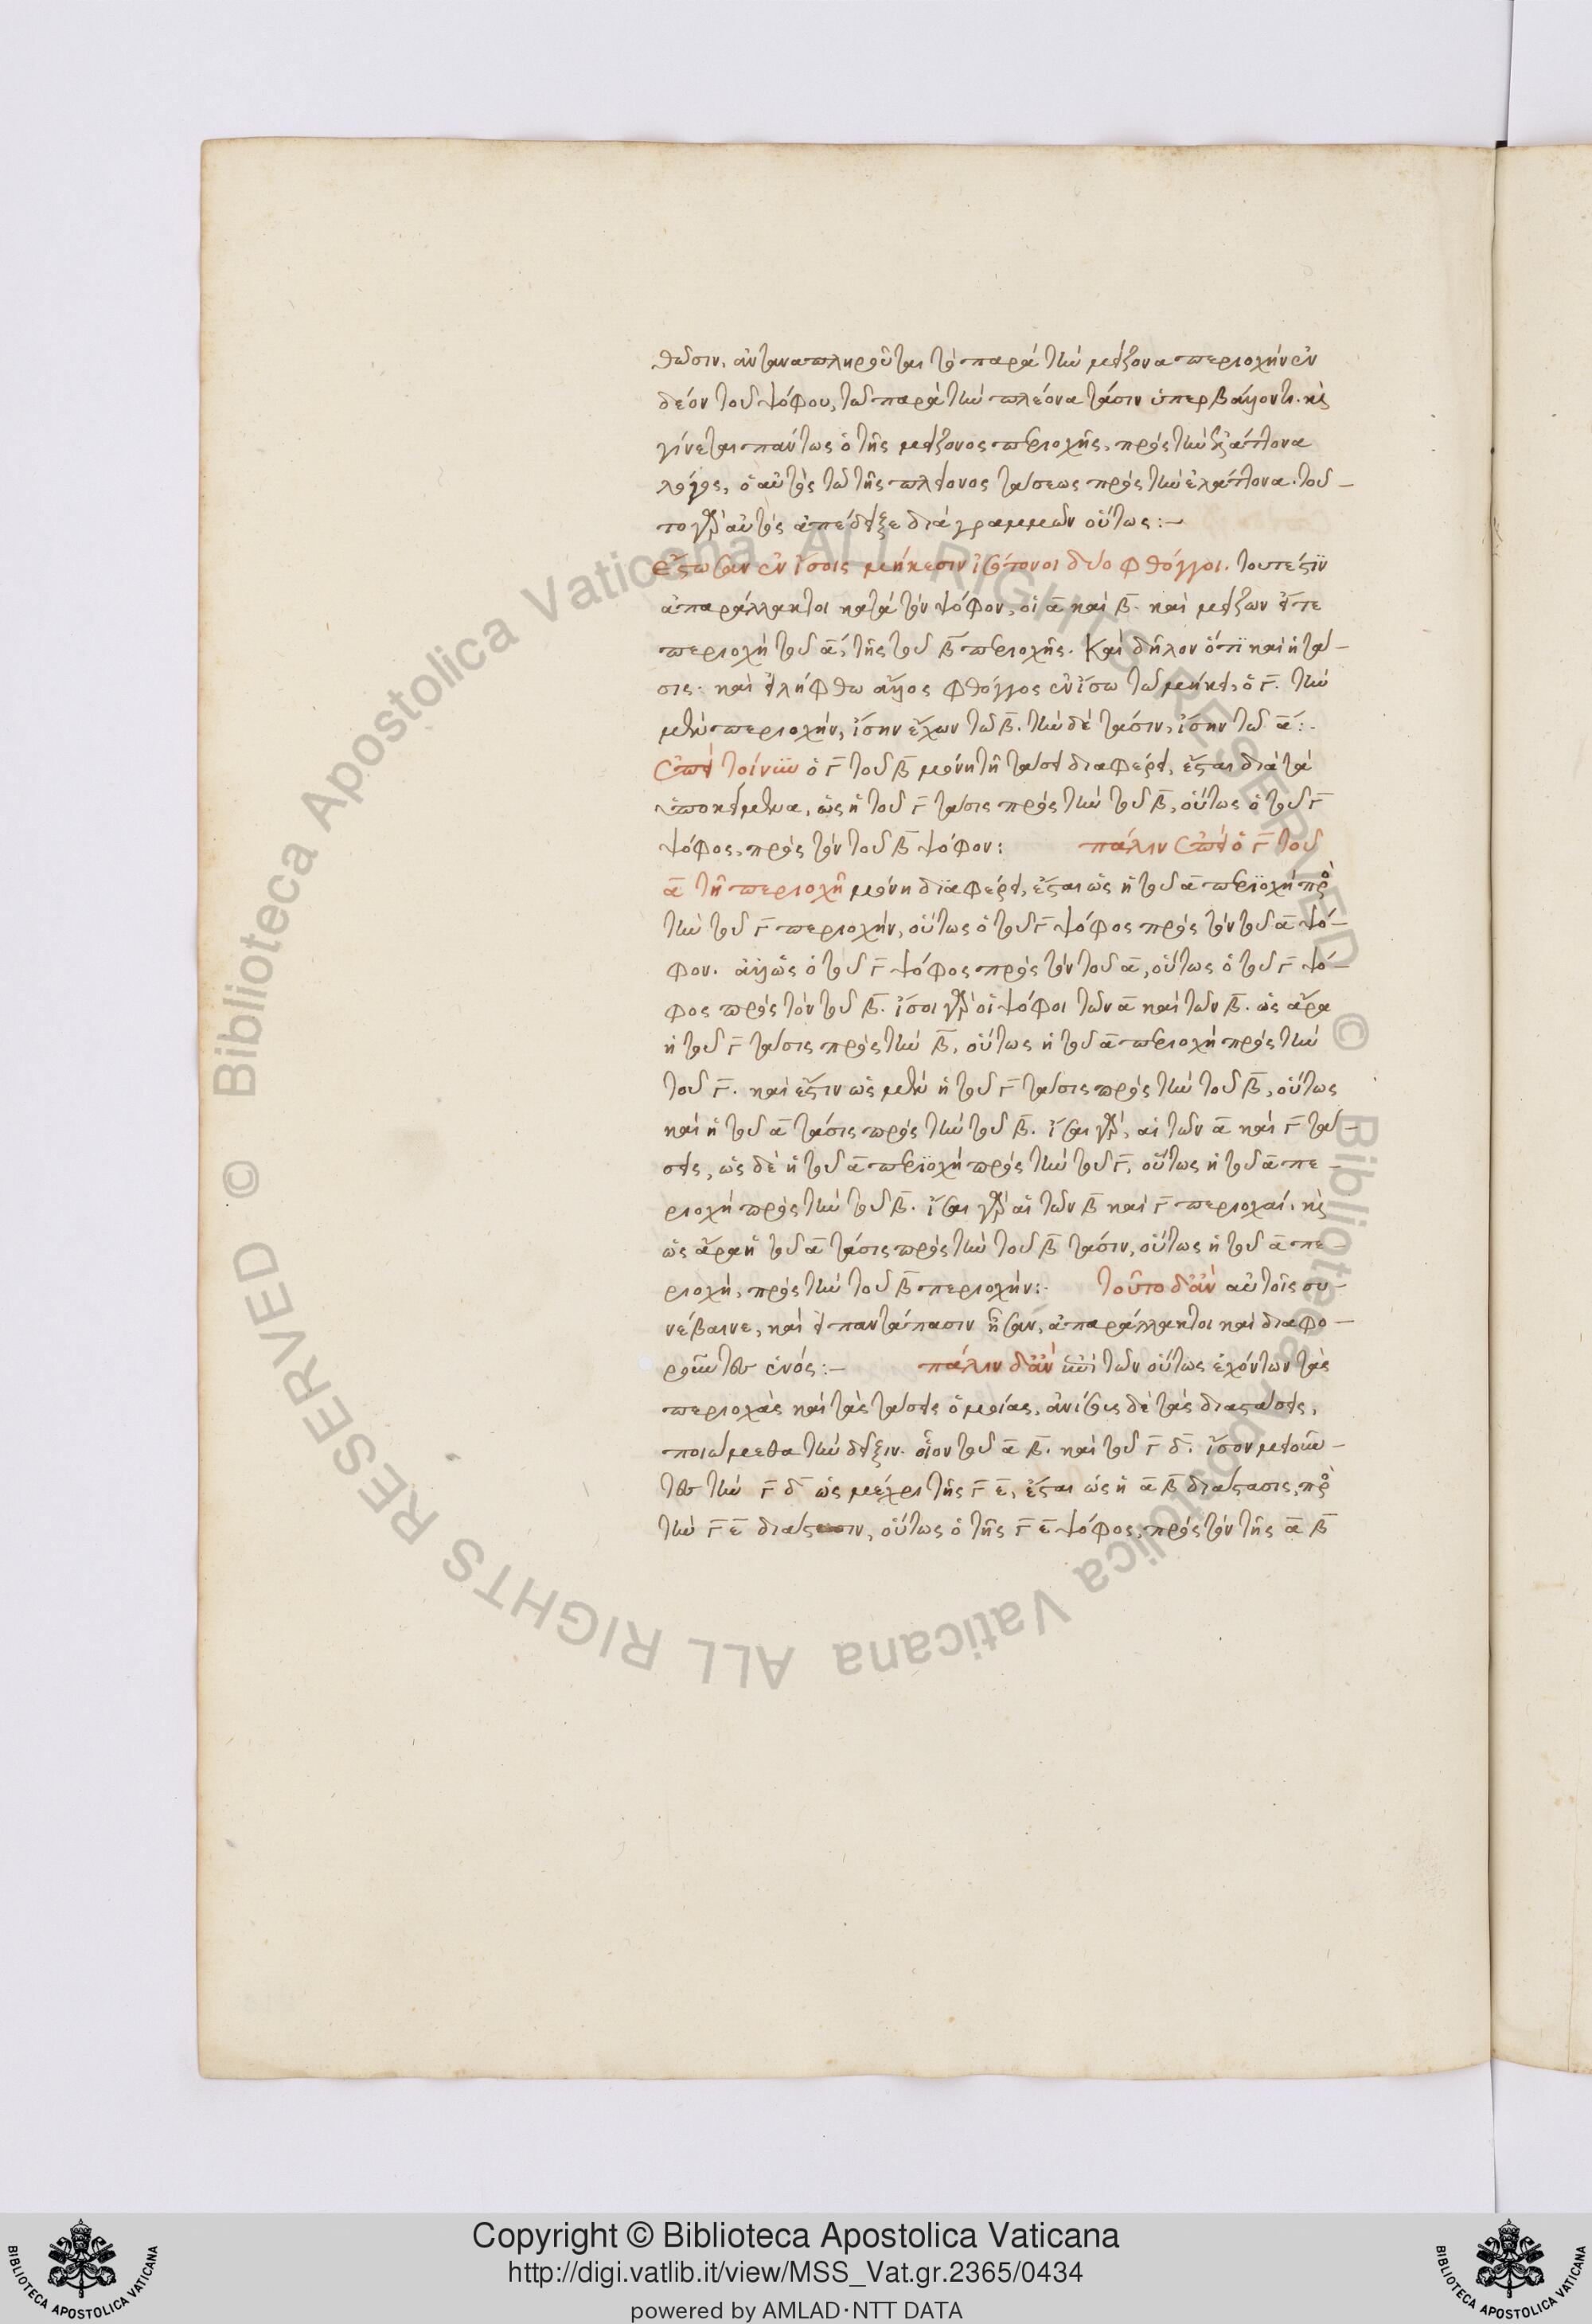 θῶσιν, ἀνταναπληροῦται τὸ παρὰ τὴν μείζονα περιοχὴν ἐν
δέον τοῦ ψόφου, τῶ παρὰ τὴν πλέονα τάσιν ὑπερβάλλοντι. καὶ
γίνεται πάντως ὁ τῆς μείζονος περιοχῆς, πρὸς τὴν ἐλάττονα
λόγος, ὁ αὐτὸς τῶ τῆς πλείονος τάσεως πρὸς τὴν ἐλάττονα. τοῦ-
το γὰρ αὐτὸς ἀπέδειξε διὰ γραμμῶν οὕτως:-
ἔστωσαν ἐν ἴσοις μήκεσιν ἰσότονοι δύο φθόγγοι. τουτέστιν
ἀπαράλλακτοι κατὰ τὸν ψόφον, οἱ α καὶ β. καὶ μείζων ἔστε
περιοχὴ τοῦ α, τῆς τοῦ β περιοχῆς. Καὶ δῆλον ὅτι καὶ ἡ τά-
σις. καὶ εἰλήφθω ἄλλος φθόγγος ἐν ἴσω τῶ μήκει, ὁ γ. τὴν
μὲν περιοχὴν, ἴσην ἔχων τῶ β. τὴν δὲ τάσιν, ἴσην τῶ α:.
Ἐπεὶ τοίνυν ὁ γ τοῦ β μόνη τῆ τάσει διαφέρει, ἔσται διὰ τὰ
ὑποκείμενα, ὡς ἡ τοῦ γ τάσις πρὸς τὴν τοῦ β, οὕτως ὁ τοῦ γ
ψόφος, πρὸς τὸν τοῦ β ψόφον: πάλιν ἐπεὶ ὁ γ τοῦ
α τῆ περιοχῆ μόνη διαφέρει, ἔσται ὡς ἡ τοῦ α περιοχὴ πρὸς
τὴν τοῦ γ περιοχὴν, οὕτως ὁ τοῦ γ ψόφος πρὸς τὸν τοῦ α ψό-
φον. ἀλλ' ὡς ὁ τοῦ γ ψόφος πρὸς τὸν τοῦ α, οὕτως ὁ τοῦ γ ψό-
φος πρὸς τὸν τοῦ β. ἴσοι γὰρ οἱ ψόφοι τῶν α καὶ τῶν β. ὡς ἄρα
ἡ τοῦ γ τάσις πρὸς τὴν β, οὕτως ἡ τοῦ α περιοχὴ πρὸς τὴν
τοῦ γ. καὶ ἔστιν ὡς μὲν ἡ τοῦ γ τάσις πρὸς τὴν τοῦ β, οὕτως
καὶ ἡ τοῦ α τάσις πρὸς τὴν τοῦ β. ἴσαι γὰρ, αἱ τῶν α καὶ γ τά-
σεις, ὡς δὲ ἡ τοῦ α περιοχὴ πρὸς τὴν τοῦ γ, οὕτως ἡ τοῦ α πε-
ριοχὴ πρὸς τὴν τοῦ β. ἴσαι γὰρ αἱ τῶν β καὶ γ περιοχαί. καὶ
ὡς ἄρα ἡ τοῦ α τάσις πρὸς τὴν τοῦ β τάσιν, οὕτως ἡ τοῦ α πε-
ριοχὴ, πρὸς τὴν τοῦ β περιοχήν:. τοῦτο δ' ἂν αὐτοῖς συ-
νέβαινε, καὶ εἰ παντάπασιν ἦσαν, ἀπαράλλακτοι καὶ διαφο-
ροῦντο ἑνός:- πάλιν δ' ἂν ἐπὶ τῶν οὕτως ἐχόντων τὰς
περιοχὰς καὶ τὰς τάσεις ὁμοίας, ἀνίσους δὲ τὰς διαστάσεις,
ποιώμεθα τὴν δεῖξιν. οἷον τοῦ α β. καὶ τοῦ γ δ. ἴσον μειοῦν-
το τὴν γ δ ὡς μέχρι τῆς γ ε, ἔσται ὡς ἡ α β διάστασις, πρὸς
τὴν γ ε διάστασιν, οὕτως ὁ τῆς γ ε ψόφος, πρὸς τὸν τῆς α β
Copyright © Biblioteca Apostolica Vaticana
http://digi.vatlib.it/view/MSS_Vat.gr.2365/0434
powered by AMLAD·NTT DATA
BIBLIOTECA APOSTOLICA VATICANA
BIBLIOTECA APOSTOLICA VATICANA
© Biblioteca Apostolica Vaticana ALL RIGHTS RESERVED
© Biblioteca Apostolica Vaticana ALL RIGHTS RESERVED